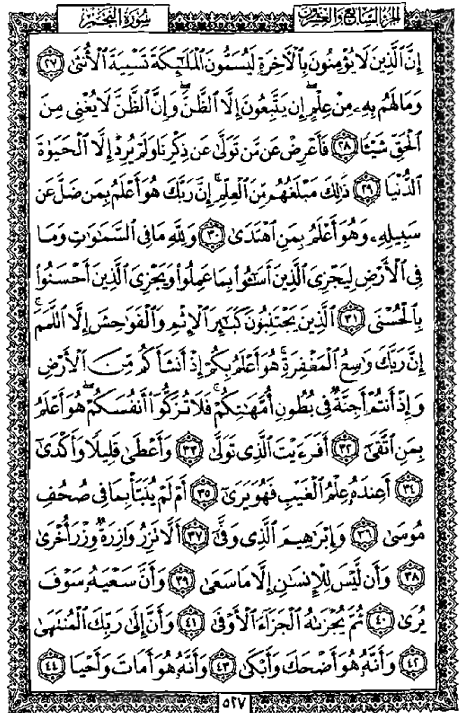 الجزء السابع والعشرون سورة النجم
إِنَّ ٱلَّذِينَ لَا يُؤْمِنُونَ بِٱلْأَخِرَةِ لَيُسَمُّونَ ٱلْمَلَٰٓئِكَةَ تَسْمِيَةَ ٱلْأُنثَىٰ ٢٧
وَمَا لَهُم بِهِۦ مِنْ عِلْمٍ ۖ إِن يَتَّبِعُونَ إِلَّا ٱلظَّنَّ ۖ وَإِنَّ ٱلظَّنَّ لَا يُغْنِى مِنَ
ٱلْحَقِّ شَيْـًٔا ٢٨ فَأَعْرِضْ عَن مَّن تَوَلَّىٰ عَن ذِكْرِنَا وَلَمْ يُرِدْ إِلَّا ٱلْحَيَوٰةَ
ٱلدُّنْيَا ٢٩ ذَٰلِكَ مَبْلَغُهُم مِّنَ ٱلْعِلْمِ ۚ إِنَّ رَبَّكَ هُوَ أَعْلَمُ بِمَن ضَلَّ عَن
سَبِيلِهِۦ وَهُوَ أَعْلَمُ بِمَنِ ٱهْتَدَىٰ ٣٠ وَلِلَّهِ مَا فِى ٱلسَّمَٰوَٰتِ وَمَا
فِى ٱلْأَرْضِ لِيَجْزِىَ ٱلَّذِينَ أَسَٰٓـُٔوا۟ بِمَا عَمِلُوا۟ وَيَجْزِىَ ٱلَّذِينَ أَحْسَنُوا۟
بِٱلْحُسْنَى ٣١ ٱلَّذِينَ يَجْتَنِبُونَ كَبَٰٓئِرَ ٱلْإِثْمِ وَٱلْفَوَٰحِشَ إِلَّا ٱللَّمَمَ ۚ
إِنَّ رَبَّكَ وَٰسِعُ ٱلْمَغْفِرَةِ ۚ هُوَ أَعْلَمُ بِكُمْ إِذْ أَنشَأَكُم مِّنَ ٱلْأَرْضِ
وَإِذْ أَنتُمْ أَجِنَّةٌ فِى بُطُونِ أُمَّهَٰتِكُمْ ۖ فَلَا تُزَكُّوٓا۟ أَنفُسَكُمْ ۖ هُوَ أَعْلَمُ
بِمَنِ ٱتَّقَىٰٓ ٣٢ أَفَرَءَيْتَ ٱلَّذِى تَوَلَّىٰ ٣٣ وَأَعْطَىٰ قَلِيلًا وَأَكْدَىٰٓ
٣٤ أَعِندَهُۥ عِلْمُ ٱلْغَيْبِ فَهُوَ يَرَىٰٓ ٣٥ أَمْ لَمْ يُنَبَّأْ بِمَا فِى صُحُفِ
مُوسَىٰ ٣٦ وَإِبْرَٰهِيمَ ٱلَّذِى وَفَّىٰٓ ٣٧ أَلَّا تَزِرُ وَازِرَةٌ وِزْرَ أُخْرَىٰ
٣٨ وَأَن لَّيْسَ لِلْإِنسَٰنِ إِلَّا مَا سَعَىٰ ٣٩ وَأَنَّ سَعْيَهُۥ سَوْفَ
يُرَىٰ ٤٠ ثُمَّ يُجْزَىٰهُ ٱلْجَزَآءَ ٱلْأَوْفَىٰ ٤١ وَأَنَّ إِلَىٰ رَبِّكَ ٱلْمُنتَهَىٰ
٤٢ وَأَنَّهُۥ هُوَ أَضْحَكَ وَأَبْكَىٰ ٤٣ وَأَنَّهُۥ هُوَ أَمَاتَ وَأَحْيَا ٤٤
٥٢٧